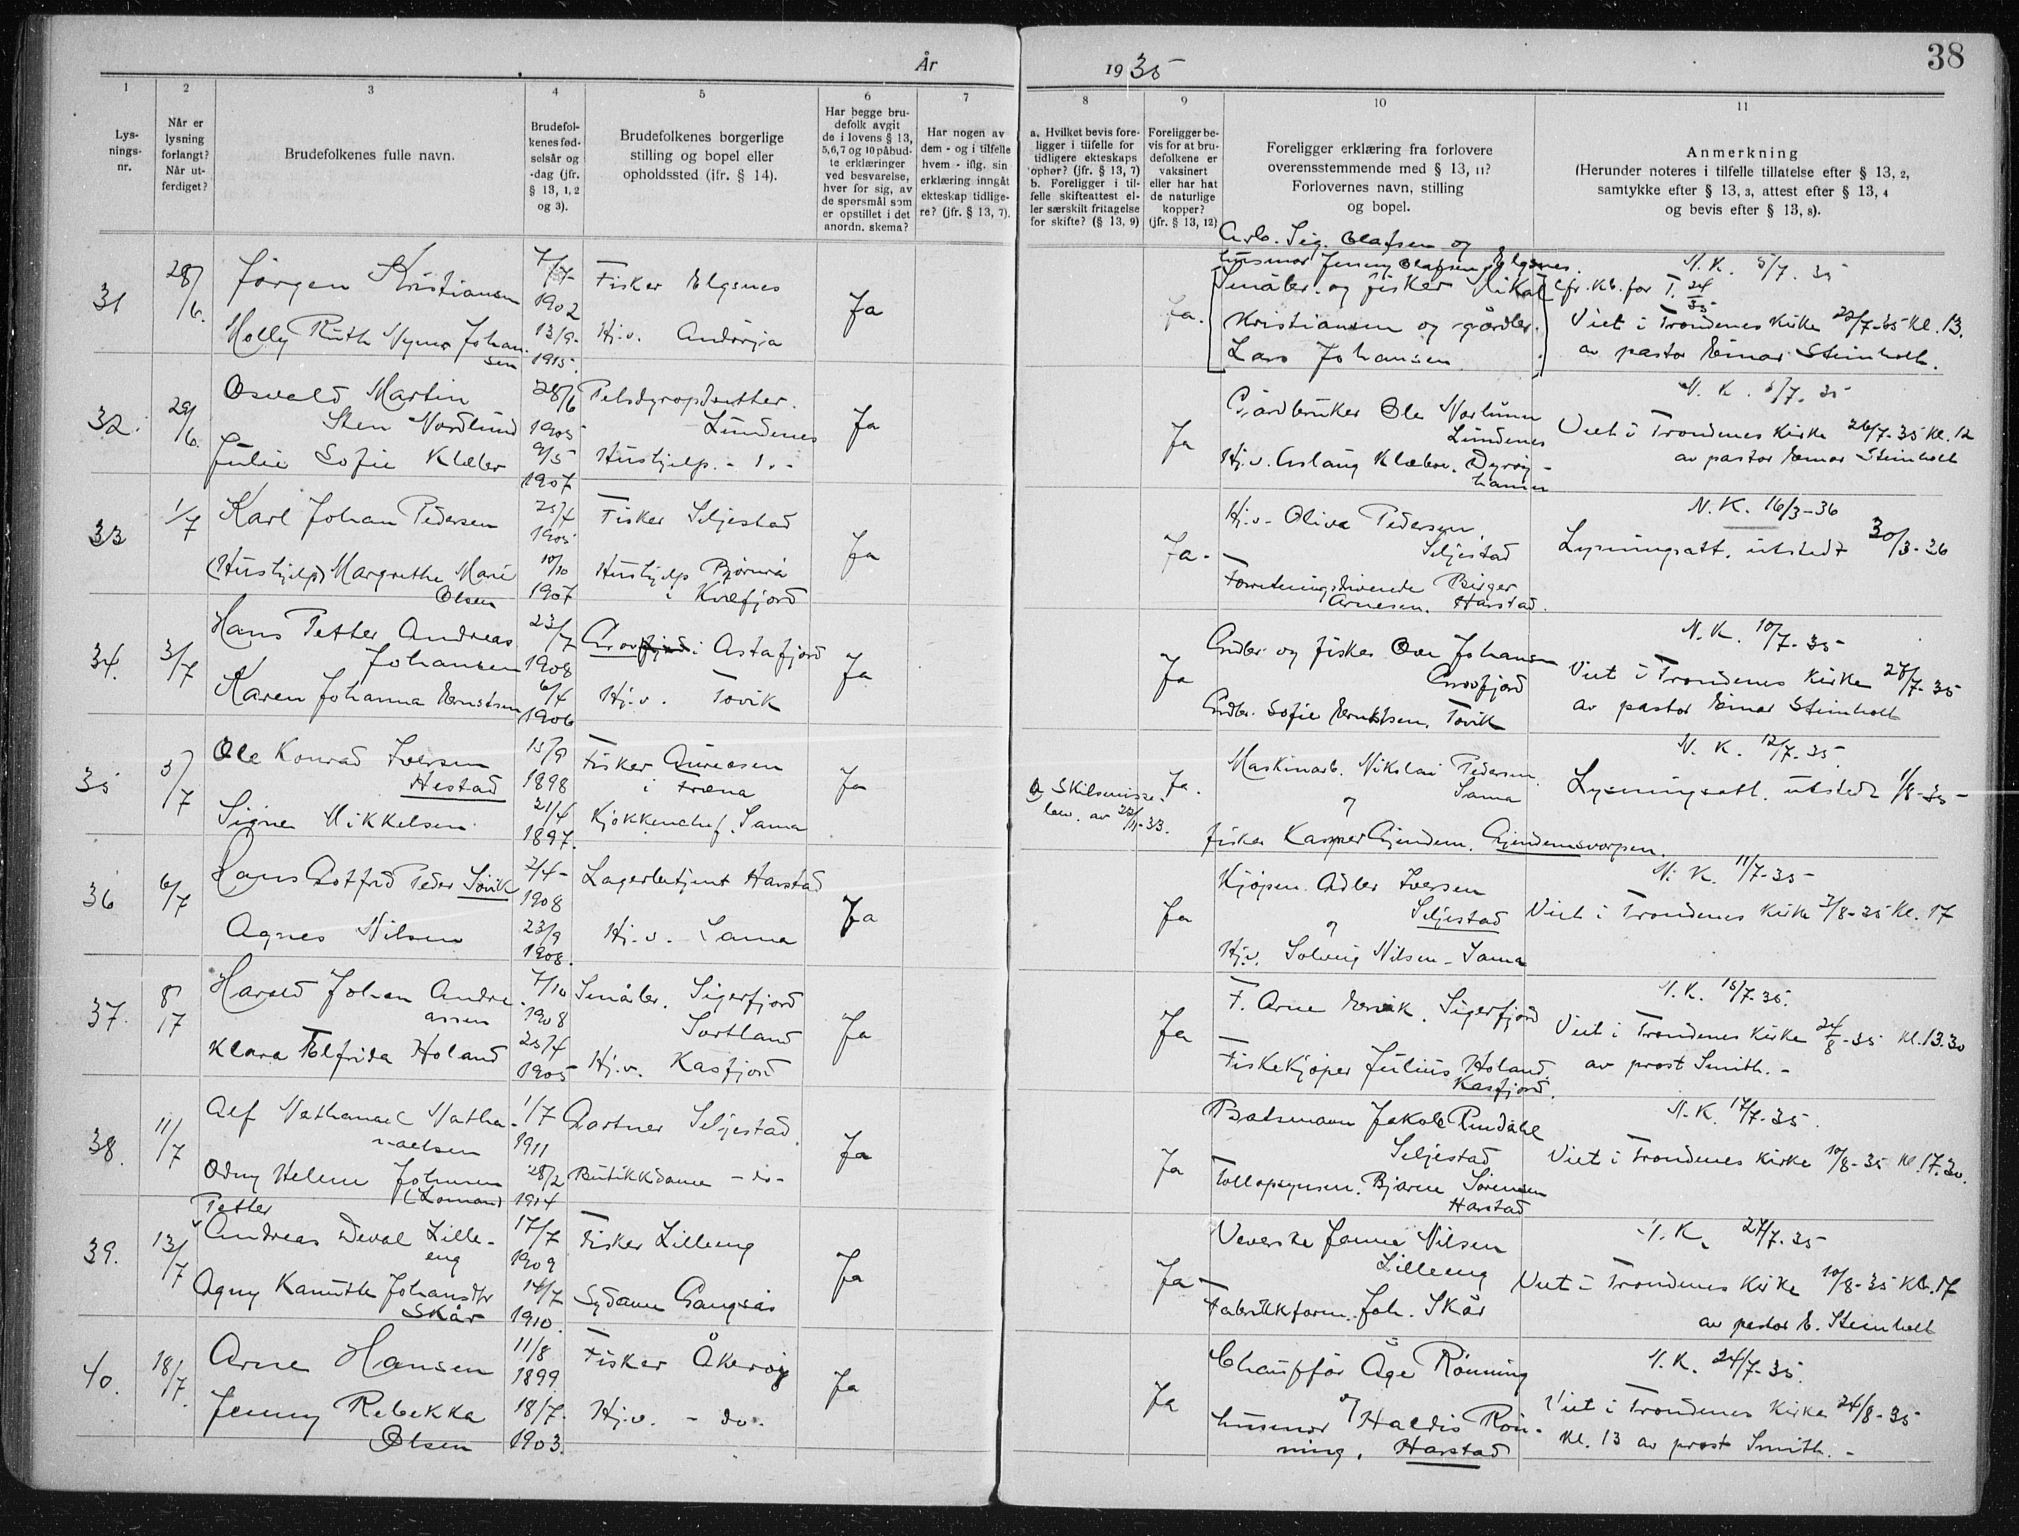 38
År 1935
1 2 3 4 5 6 7 8 9 10 11
Lys-
nings-
nr.
Når er
lysning
forlangt?
Når ut-
ferdiget?
Brudefolkenes fulle navn.
Brudefol-
kenes fød-
selsår og
-dag (jfr.
§ 13, 1, 2
og 3).
Brudefolkenes borgerlige
stilling og bopel eller
opholdssted (jfr. § 14).
Har begge bru-
defolk avgit
de i lovens § 13,
5, 6, 7 og 10 påbud-
te erklæringer
ved besvarelse,
hver for sig, av
de spørsmål som
er opstillet i det
anordn. skema?
Har nogen av
dem - og i tilfelle
hvem - iflg. sin
erklæring inngåt
ekteskap tidlige-
re? (jfr. § 13, 7).
a. Hvilket bevis fore-
ligger i tilfelle for
tidligere ekteskaps
ophør? (jfr. § 13, 7)
b. Foreligger i til-
felle skifteattest el-
ler særskilt fritagelse
for skifte? (§ 13, 9)
Foreligger be-
vis for at bru-
defolkene er
vaksinert
eller har hat
de naturlige
kopper?
(jfr. § 13, 12)
Foreligger erklæring fra forlovere
overensstemmende med § 13, 11?
Forlovernes navn, stilling
og bopel.
Anmerkning
(Herunder noteres i tilfelle tillatelse efter § 13, 2,
samtykke efter § 13, 3, attest efter § 13, 4
og bevis efter § 13, 8).
31 28/6.
Jørgen Kristiansen
7/7- 1902
Fisker Elgsnes
Ja
Molly Ruth Johansen
13/9- 1915.
Hj.v. Andørja
Ja.
Arb. Sig. Olafsen og
husmor Jenny Olafsen, Elgsnes.
Småbr. og fisker Mikal
Kristiansen og gårdbr.
Lars Johansen
N.K. 5/7. 35
Cfr. kb. for T. 24/35
Viet i Trondenes Kirke 22/7-35 kl. 13.
av pastor Einar Steinholt.
32. 29/6.
Osvald Martin
Sten Nordlund
28/6 1905
Pelsdyropdretter.
Lundenes
Ja
Julie Sofie Klæbo
9/5 1907
Hushjelp. - " -
Ja
Gårdbruker Ole Norlund
Lundenes
Hj.v. Aslaug Klæboe. Dyrøy-
hamn
N.K. 5/7. 35
Viet i Trondenes Kirke 26/7-35 kl. 12
av pastor Einar Steinholt
33 1/7
Karl Johan Pedersen
25/4 1905
Fisker Seljestad
Ja
(Hushjelp) Margrethe Marie
Olsen
10/10 1907
Hushjelp Bjørnrå
i Kvæfjord
Ja.
Hj.v. Oliva Pedersen,
Seljestad
Forretningsdrivende Birger
Arnesen. Harstad.
N.K. 16/3-36
Lysningsatt. utstedt 30/3-36
34. 3/7
Hans Petter Andreas
Johansen
23/7 1908
Grovfjord i Astafjord
Ja
Karen Johanna Ernstsen
6/4 1906
Hj.v. Tovik
Ja
Grdbr. og fisker Ove Johansen
Grovfjord
Grdbr. Sofie Ernstsen, Tovik
N.K. 10/7-35
Viet i Trondenes Kirke 28/7-35
av pastor Einar Steinholt
35 5/7
Ole Konrad Iversen
Hestad
15/9 1898
Fisker
i Træna
Ja
Signe Mikkelsen.
21/4 1897.
Kjøkkenchef. Sama
a) Skilsmisse-
bev. av 22/11-33.
Ja.
Maskinarb. Nikolai Pedersen
Sama
og
fisker Kasper Gjendem.
N.K. 12/7.35.
Lysningsatt. utstedt 1/8-35-
36 6/7
Hans Gotfrid Peder Søvik
2/4- 1908
Lagerbetjent Harstad
Ja
Agnes Nilsen
23/9 1908.
Hj.v. Sama
Ja
Kjøpm. Adler Iversen
Seljestad
og
Hj.v. Solveig Nilsen - Sama
N.K. 11/7-35-
Viet i Trondenes Kirke 3/8-35 kl. 17
37. 8/7
Harald Johan Andre-
assen
7/10 1908
Småbr. Sigerfjord
Sortland
Ja
Klara Elfrida Holand
25/4 1905
Hj.v. Kasfjord
Ja
F. Arne Ervik. Sigerfjord
Fiskekjøper Julius Holand,
Kasfjord.
N.K. 15/7-35.
Viet i Trondenes Kirke 24/8-35 kl. 13.30
av prost Smith. -
38. 11/7
Alf Nathanael Natha-
naelsen
1/7 1911
Gartner Seljestad.
Ja
Odny Helene Johansen
28/2 1914
Butikkdame - do -
Ja
Båtsmann Jakob Rindahl
Seljestad
Tollopsynsm. Bjarne Sørensen
Harstad
N.K. 17/7-35.
Viet i Trondenes Kirke 10/8-35 kl. 17.30.
39. 13/7
Petter
Andreas Deval Lille-
eng
17/7 1909
Fisker Lilleeng
Ja
Agny Kamitte Johansdtr
Skår
14/7 1910.
Sydame Gangsås
Ja
Veverske Janna Nilsen
Lilleeng
Fabrikkform. Joh. Skår
N.K. 24/7.35
Viet i Trondenes Kirke 10/8-35 kl. 17
av pastor E. Steinholt
40. 18/7.
Arne Hansen
11/8 1899
Fisker Åkerøy
Ja
Jenny Rebekka
Olsen
18/7. 1903.
Hj.v. - do -
Ja
Chauffør Åge Rønning
og
husmor Haldis Røn-
ning, Harstad
N.K. 24/7-35.
Viet i Trondenes Kirke 24/8-35
kl. 13 av prost Smith. -